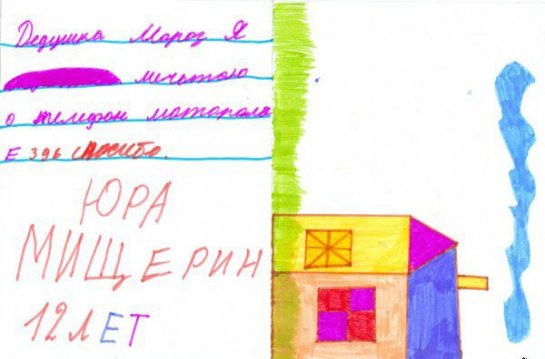 Дедушка Мороз Я
мечтаю
о телефон моторола
Е 396 спосибо.
ЮРА
МИЩЕРИН
12 ЛЕТ